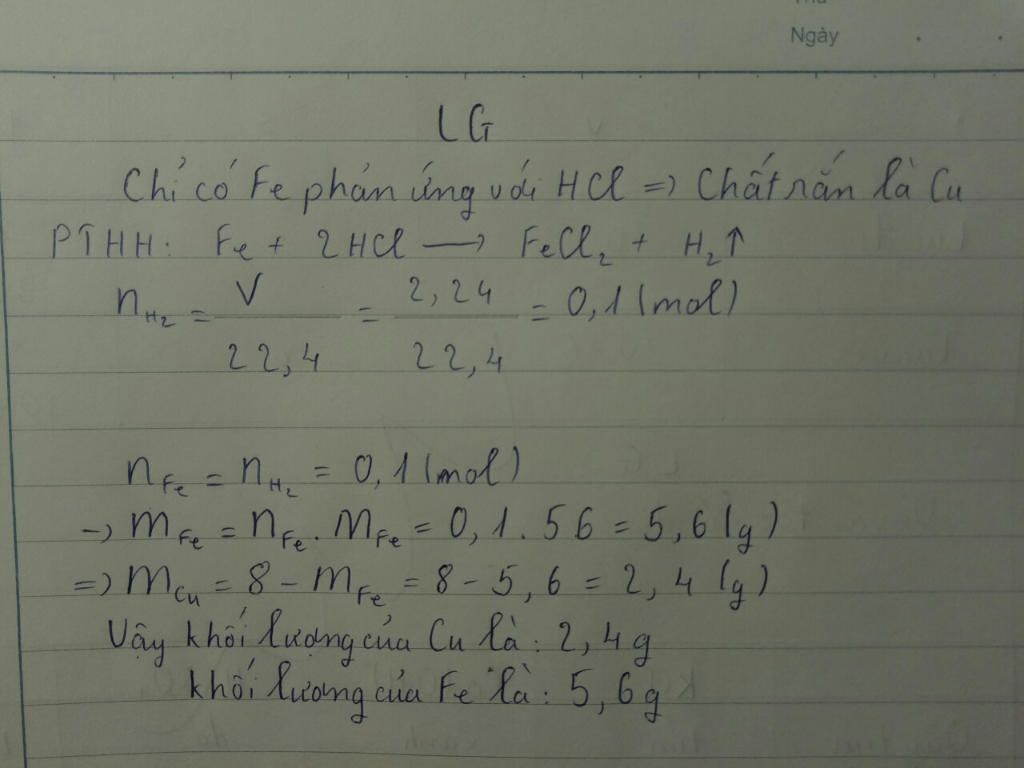 Ngày
LG
Chỉ có Fe phản ứng với HCl => Chất rắn là Cu
PTHH: Fe + 2HCl → FeCl₂ + H₂↑
n_H₂ = V/22,4 = 2,24/22,4 = 0,1 (mol)
n_Fe = n_H₂ = 0,1 (mol)
→ m_Fe = n_Fe . M_Fe = 0,1 . 56 = 5,6 (g)
=> m_Cu = 8 - m_Fe = 8 - 5,6 = 2,4 (g)
Vậy khối lượng của Cu là: 2,4g
khối lượng của Fe là: 5,6g